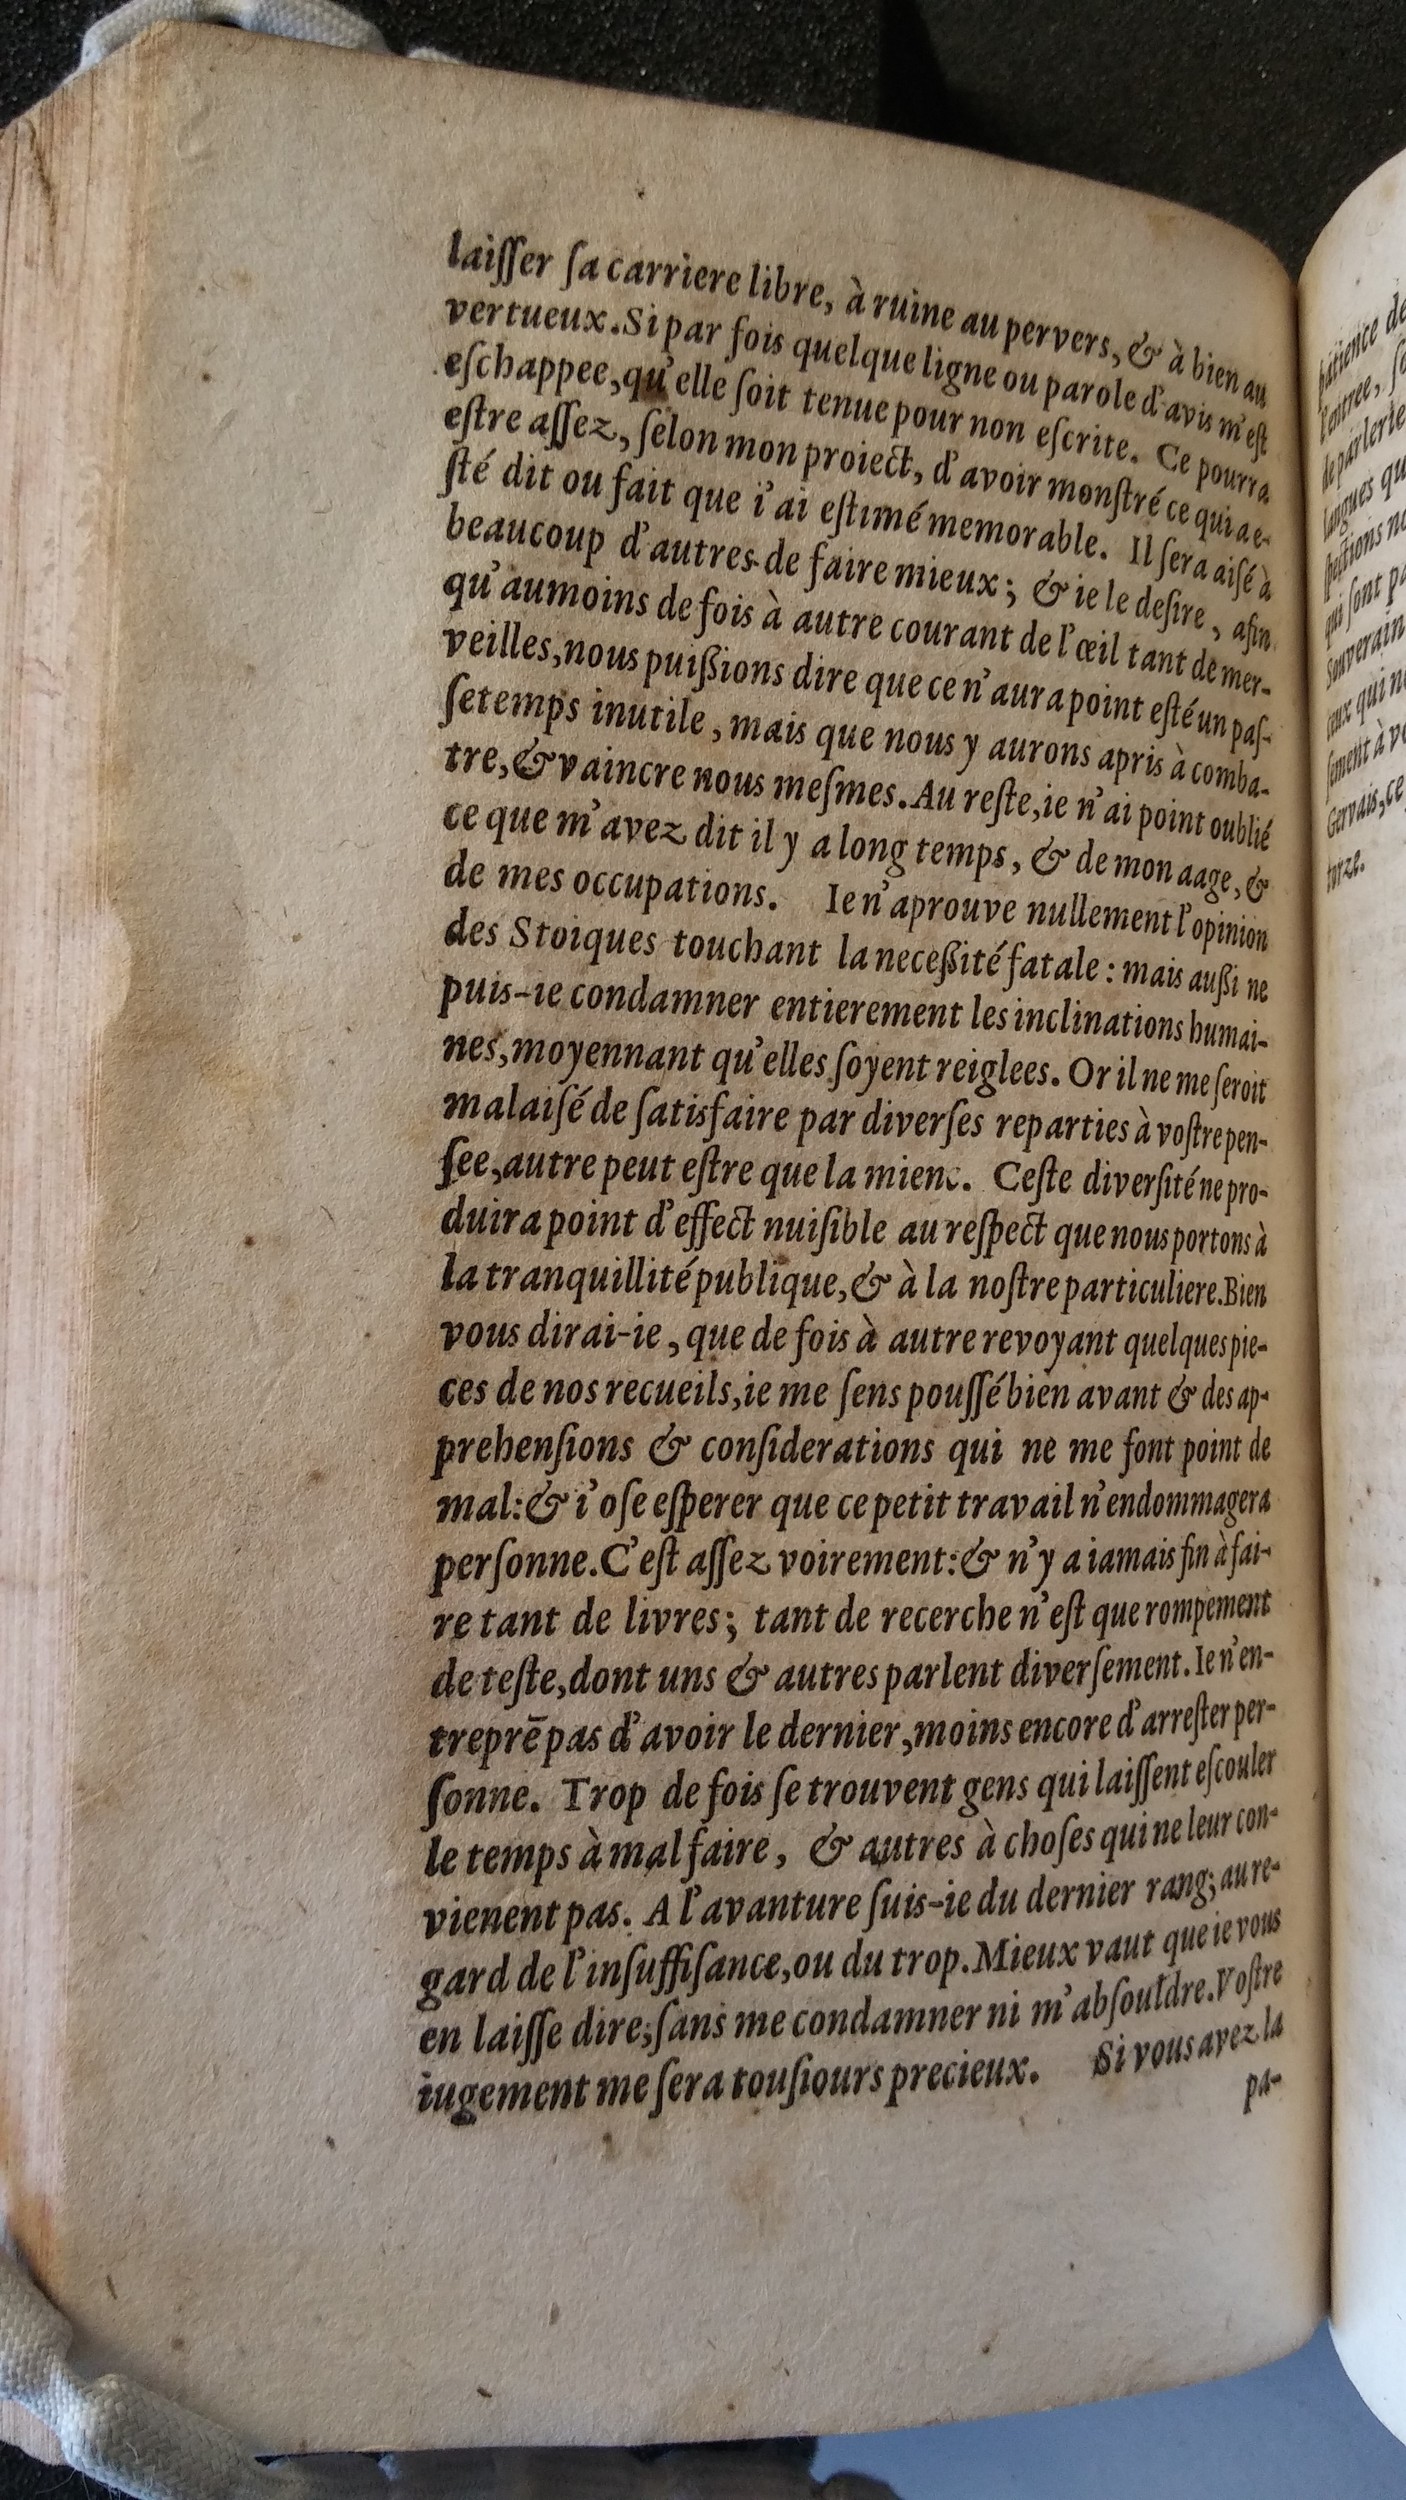 laiſſer ſa carriere libre, à ruine au pervers, & à bien au
vertueux. Si par fois quelque ligne ou parole d'avis m'eſt
eſchappee, qu'elle ſoit tenue pour non eſcrite. Ce pourra
eſtre aſſez, ſelon mon proiect, d'avoir monſtré ce qui a e-
ſté dit ou fait que i'ai eſtimé memorable. Il ſera aiſé à
beaucoup d'autres de faire mieux; & ie le deſire, afin
qu'aumoins de fois à autre courant de l'œil tant de mer-
veilles, nous puiſsions dire que ce n'aura point eſté un paſ-
ſetemps inutile, mais que nous y aurons apris à comba-
tre, & vaincre nous meſmes. Au reſte, ie n'ai point oublié
ce que m'avez dit il y a long temps, & de mon aage, &
de mes occupations. Ie n'aprouve nullement l'opinion
des Stoiques touchant la neceſsité fatale: mais auſsi ne
puis-ie condamner entierement les inclinations humai-
nes, moyennant qu'elles ſoyent reiglees. Or il ne me ſeroit
malaiſé de ſatisfaire par diverſes reparties à voſtre pen-
ſee, autre peut eſtre que la miene. Ceſte diverſité ne pro-
duira point d'effect nuiſible au reſpect que nous portons à
la tranquillité publique, & à la noſtre particuliere. Bien
vous dirai-ie, que de fois à autre revoyant quelques pie-
ces de nos recueils, ie me ſens pouſſé bien avant & des ap-
prehenſions & conſiderations qui ne me font point de
mal: & i'oſe eſperer que ce petit travail n'endommagera
perſonne. C'eſt aſſez voirement: & n'y a iamais fin à fai-
re tant de livres; tant de recerche n'eſt que rompement
de teſte, dont uns & autres parlent diverſement. Ie n'en-
treprē pas d'avoir le dernier, moins encore d'arreſter per-
ſonne. Trop de fois ſe trouvent gens qui laiſſent eſcouler
le temps à mal faire, & autres à choſes qui ne leur con-
vienent pas. A l'avanture ſuis-ie du dernier rang; au re-
gard de l'inſuffiſance, ou du trop. Mieux vaut que ie vous
en laiſſe dire; ſans me condamner ni m'abſouldre. Voſtre
iugement me ſera touſiours precieux. Si vous avez la
pa-
patience de
l'entree, ſo
de parler
langues qu
qui ſont pa
Souverain
ceux qui n
ſement à vo
Gervais, ce
torze.